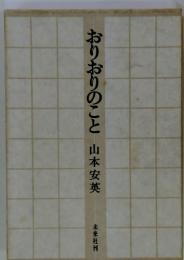 おりおりのこと
山本安英
未来社刊